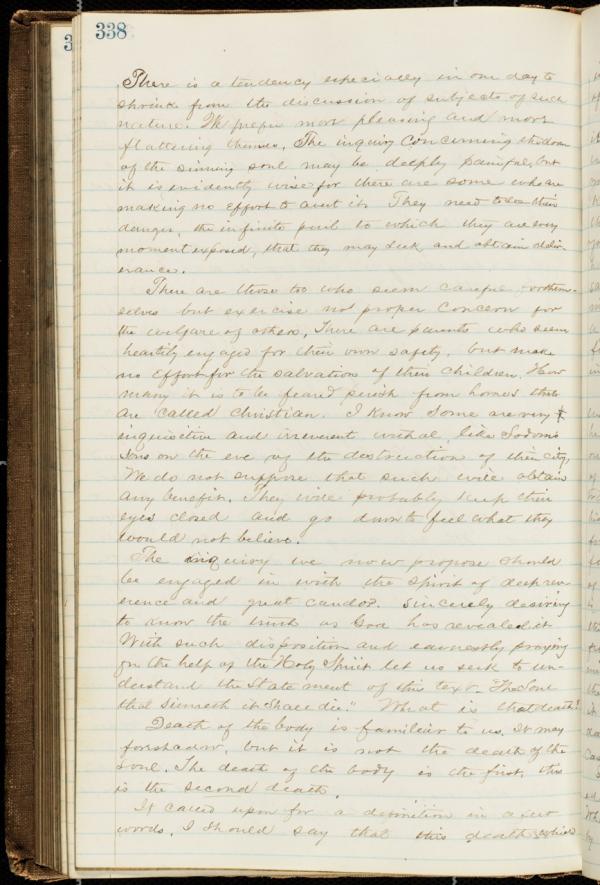 338
There is a tendency especially in our day to
shrink from the discussion of subjects of such
nature. We prefer more pleasing and more
flattering themes. The inquiry concerning the doom
of the sinning soul may be deeply painful, but
it is evidently wise for there are some who are
making no effort to avert it. They need to see their
danger, the infinite peril to which they are every
moment exposed, that they may seek and obtain deliv-
erance.
There are those too who seem careful for them-
selves but exercise not proper concern for
the welfare of others. There are parents who seem
heartily engaged for their own safety, but make
no effort for the salvation of their children. How
many it is to be feared perish from homes that
are called Christian. I know some are very
inquisitive and irreverent withal like Sodom's
sons on the eve of the destruction of their city.
We do not suppose that such will obtain
any benefit. They will probably keep their
eyes closed and go down to feel what they
would not believe.
The inquiry we now propose should
be engaged in with the spirit of deep rev-
erence and great candor. Sincerely desiring
to know the truth as God has revealed it
With such disposition and earnestly praying
for the help of the Holy Spirit let us seek to un-
derstand the statement of this text - "The Soul
that sinneth it shall die." What is that death?
Death of the body is familiar to us. It may
foreshadow, but it is not the death of the
soul. The death of the body is the first, this
is the second death.
If called upon for a definition in a few
words, I should say that this death which